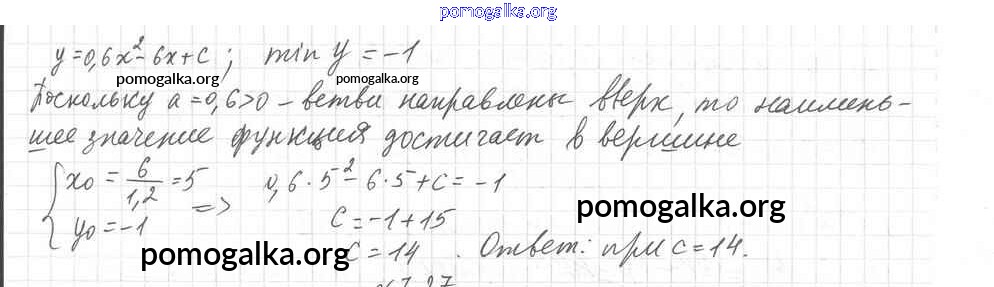 pomogalka.org
y=0,6x²-6x+c; min y = -1
pomogalka.org pomogalka.org
Поскольку a=0,6>0 – ветви направлены вверх, то наимень-
шее значение функция достигает в вершине
{x₀ = 6/1,2 = 5 => 0,6·5²-6·5+c=-1
y₀=-1 c=-1+15
pomogalka.org
c=14. Ответ: при c=14.
pomogalka.org